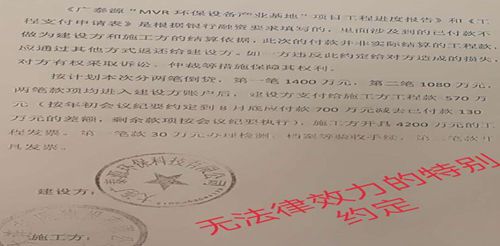 《广泰源“MVR环保设备产业基地”项目工程进度报告》和《工
程支付申请表》是根据银行融资要求填写的，里面涉及到的已付款不
做为建设方和施工方的结算依据，此次的付款并非实际结算的工程款，
应通过其他方式返还给建设方。如一方违反此约定给对方造成的损失，
对方有权采取诉讼、仲裁等措施保障其权利。
按计划本次分两笔倒贷，第一笔1400万元，第二笔1080万元，
两笔款项均进入建设方账户后，建设方支付给施工方工程款570万
元（按年初会议纪要约定到8月底应付款700万元减去已付款130
万元的差额，剩余款项按会议纪要执行），施工方开具4200万元的工
程发票。第一笔款30万元办理检测、档案等验收手续，第二笔款
具发票。
建设方：
源环保科技有限公司
施工方：
无法律效力的特别
约定